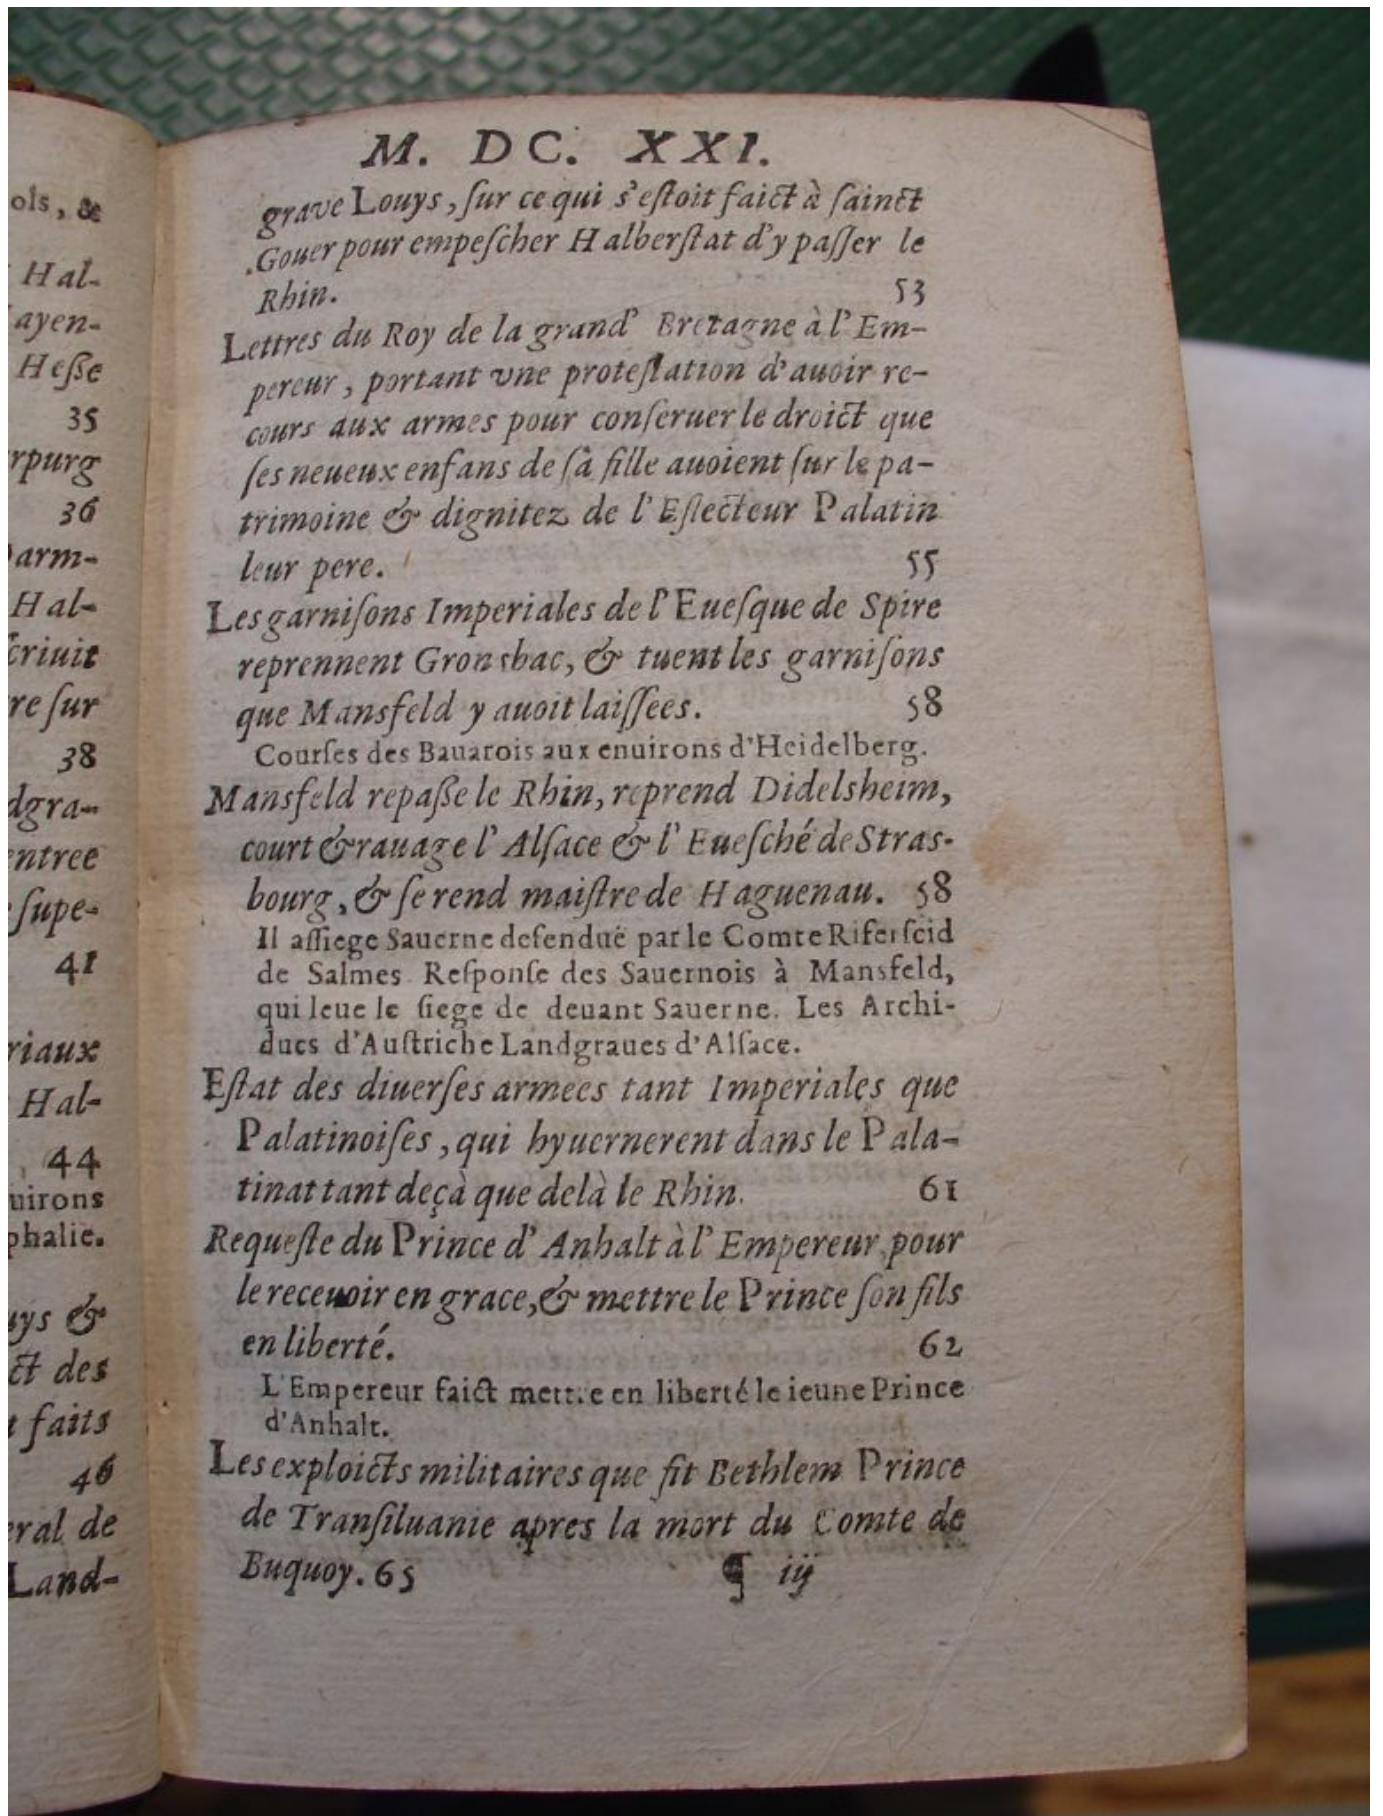 ols, &
Hal-
ayen-
Heſſe
35
rpurg
36
arm-
Hal-
criuit
re ſur
38
dgra-
entree
ſupe-
41
riaux
Hal-
44
uirons
phalie.
uys &
ct des
faits
46
eral de
Land-
M. DC. XXI.
graue Louys, ſur ce qui s'eſtoit faict à ſainct
Gouer pour empeſcher Halberſtat d'y paſſer le
Rhin. 53
Lettres du Roy de la grand' Bretagne à l'Em-
pereur, portant vne proteſtation d'auoir re-
cours aux armes pour conſeruer le droict que
ſes neueux enfans de ſà fille auoient ſur le pa-
trimoine & dignitez de l'Eſlecteur Palatin
leur pere. 55
Les garniſons Imperiales de l'Eueſque de Spire
reprennent Gronsbac, & tuent les garniſons
que Mansfeld y auoit laiſſees. 58
Courſes des Bauarois aux enuirons d'Heidelberg.
Mansfeld repaſſe le Rhin, reprend Didelsheim,
court & rauage l'Alſace & l'Eueſché de Stras-
bourg, & ſe rend maiſtre de Haguenau. 58
Il aſſiege Sauerne defenduë par le Comte Riferſcid
de Salmes. Reſponſe des Sauernois à Mansfeld,
qui leue le ſiege de deuant Sauerne. Les Archi-
ducs d'Auſtriche Landgraues d'Alſace.
Eſtat des diuerſes armees tant Imperiales que
Palatinoiſes, qui hyuernerent dans le Pala-
tinat tant deçà que delà le Rhin. 61
Requeſte du Prince d'Anhalt à l'Empereur, pour
le receuoir en grace, & mettre le Prince ſon fils
en liberté. 62
L'Empereur faict mettre en liberté le ieune Prince
d'Anhalt.
Les exploicts militaires que fit Bethlem Prince
de Tranſiluanie apres la mort du Comte de
Buquoy. 65 ¶ iij